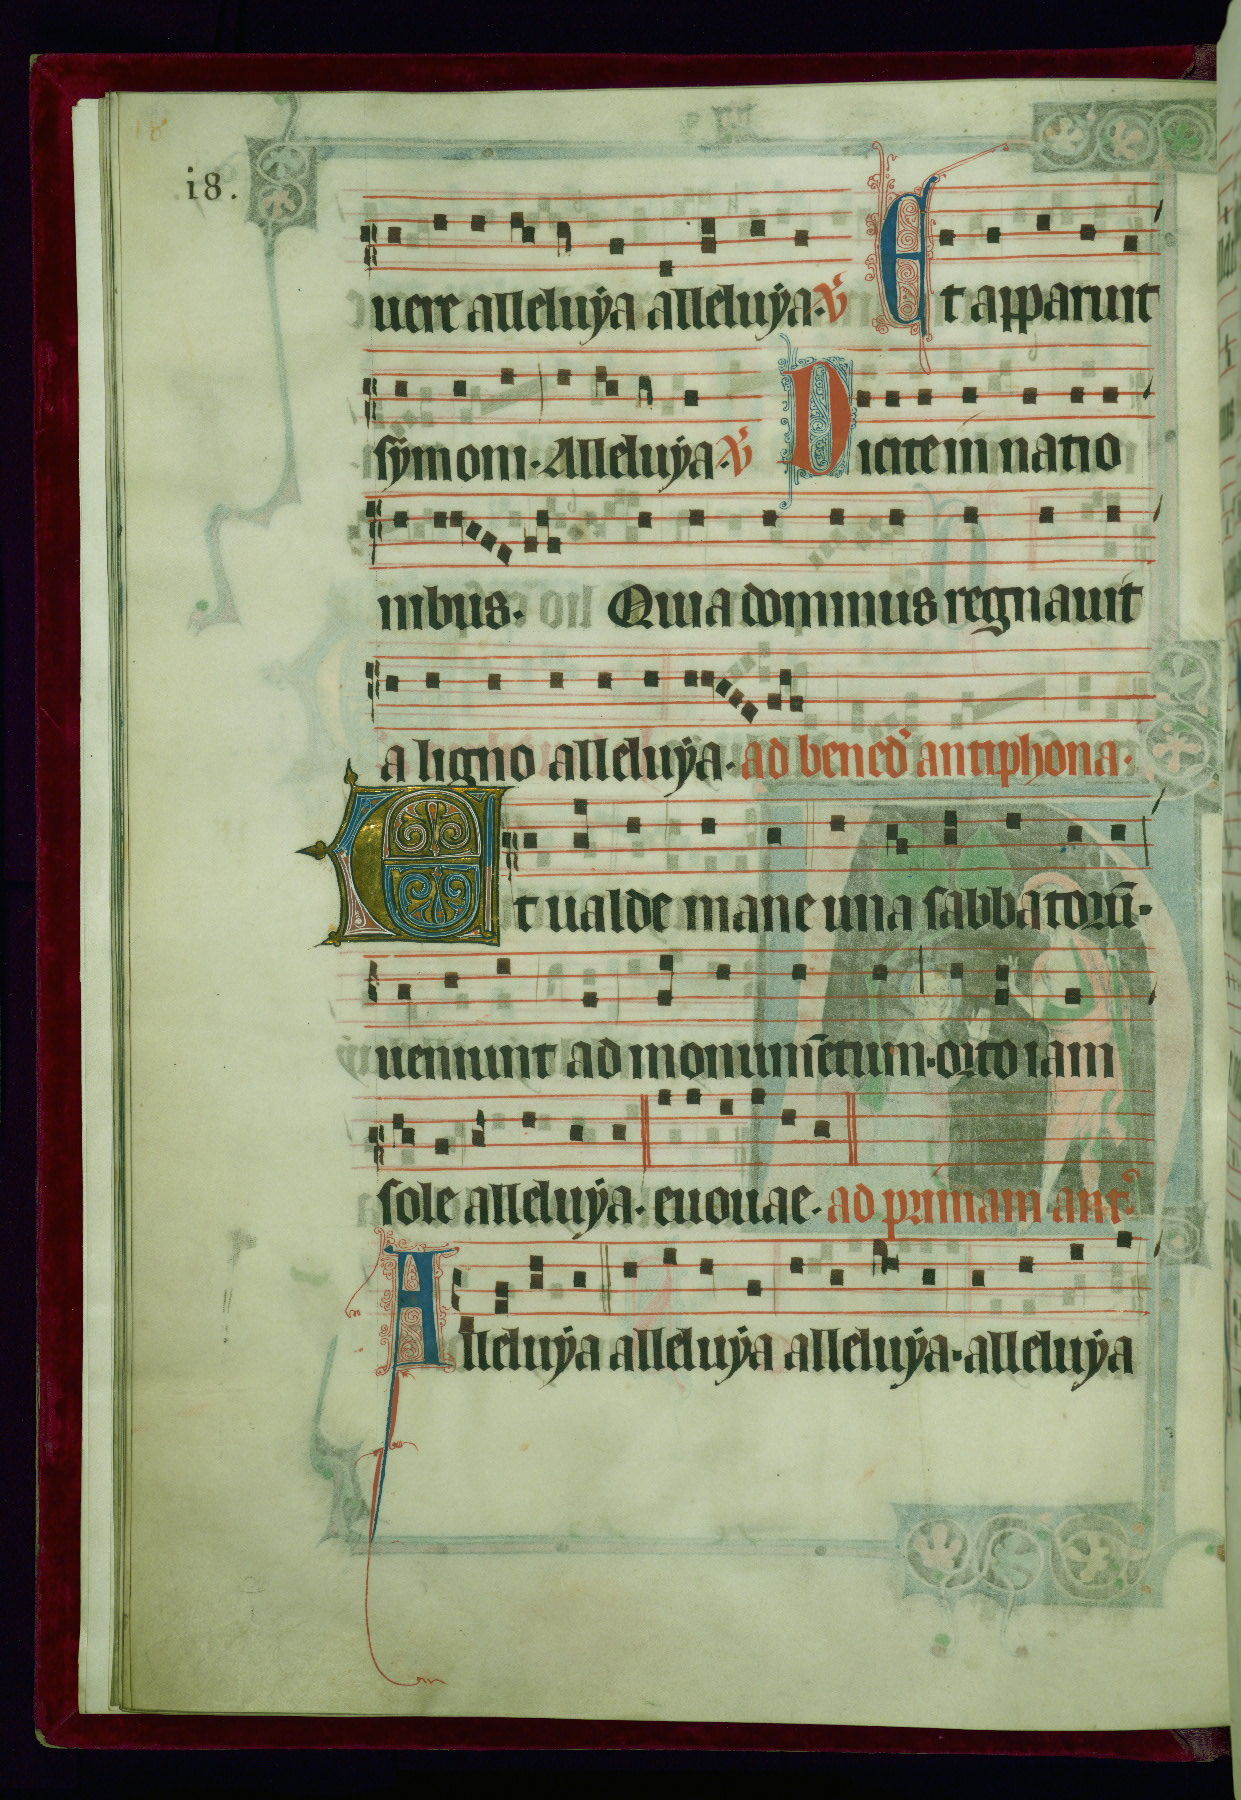 i8.
uere alleluÿa alleluÿa. ℣ Et apparuit
sẏmoni. Alleluÿa. ℣ Dicite in natio
nibus. Quia dominus regnauit
a ligno alleluÿa. ad bened̉ antiphona.
Et ualde mane una sabbatorū.
ueniunt ad monumētum. orto iam
sole alleluÿa. euouae. ad primam ant̉.
Alleluÿa alleluÿa alleluÿa. alleluÿa